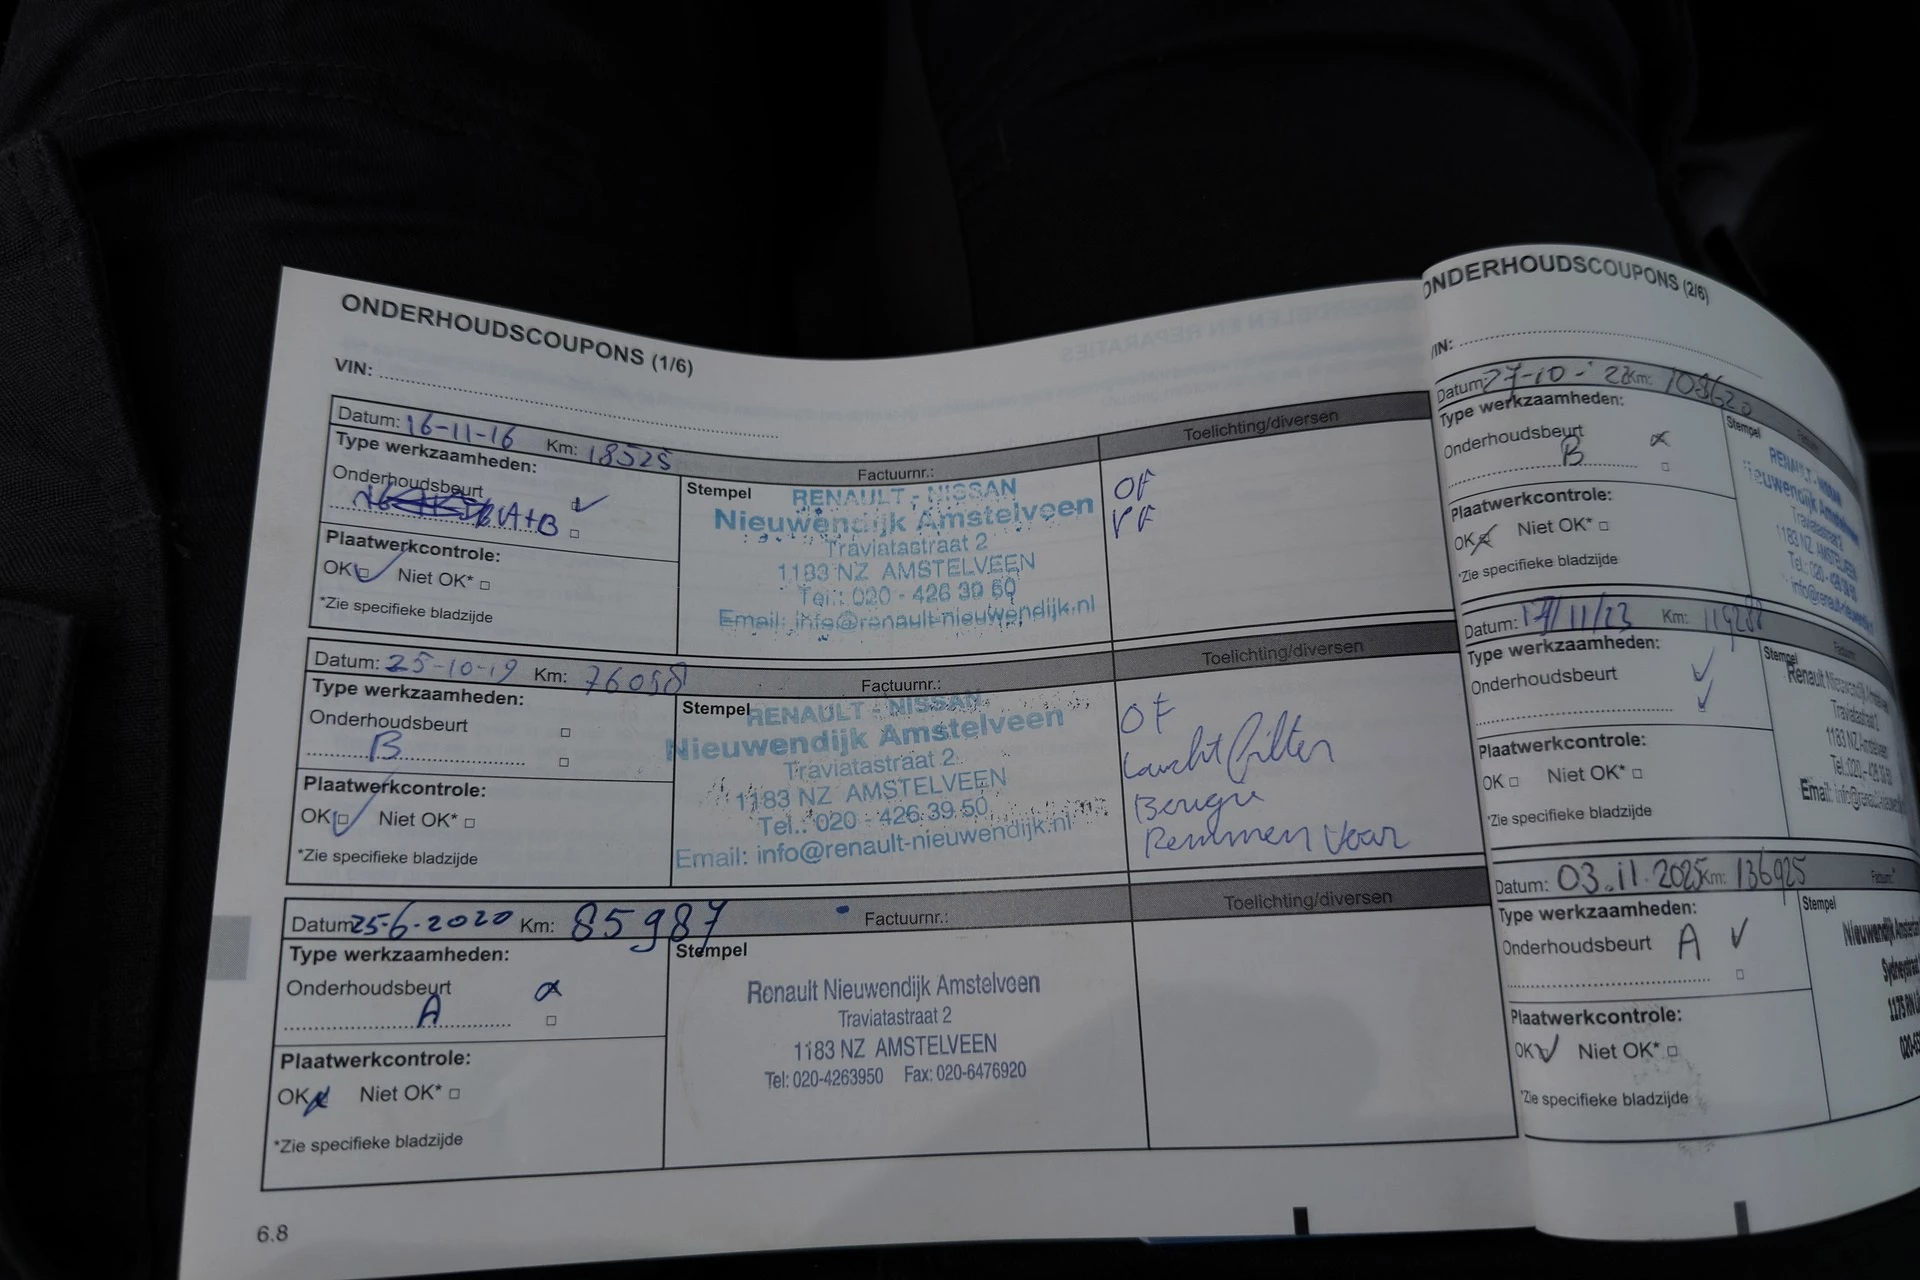 ONDERHOUDSCOUPONS (1/6)
VIN:
Datum: 16-11-16 Km: 18525 Factuurnr.: Toelichting/diversen
Type werkzaamheden:
Onderhoudsbeurt
A+B
Plaatwerkcontrole:
OK Niet OK*
*Zie specifieke bladzijde
Stempel
RENAULT - NISSAN
Nieuwendijk Amstelveen
Traviatastraat 2
1183 NZ AMSTELVEEN
Tel.: 020 - 426 39 50
Email: info@renault-nieuwendijk.nl
OF
Datum: 25-10-19 Km: 76098 Factuurnr.: Toelichting/diversen
Type werkzaamheden:
Onderhoudsbeurt
B
Plaatwerkcontrole:
OK Niet OK*
*Zie specifieke bladzijde
Stempel
RENAULT - NISSAN
Nieuwendijk Amstelveen
Traviatastraat 2
1183 NZ AMSTELVEEN
Tel.: 020 - 426.39.50
Email: info@renault-nieuwendijk.nl
OF
Luchtfilter
Remmen Voor
Datum: 25-6-2020 Km: 85987 Factuurnr.: Toelichting/diversen
Type werkzaamheden:
Onderhoudsbeurt
A
Plaatwerkcontrole:
OK Niet OK*
*Zie specifieke bladzijde
Stempel
Renault Nieuwendijk Amstelveen
Traviatastraat 2
1183 NZ AMSTELVEEN
Tel: 020-4263950 Fax: 020-6476920
6.8
ONDERHOUDSCOUPONS (2/6)
VIN:
Datum: 27-10-22 Km: 108620
Type werkzaamheden:
Onderhoudsbeurt
B
Plaatwerkcontrole:
OK Niet OK*
*Zie specifieke bladzijde
Stempel
RENAULT - NISSAN
Nieuwendijk Amstelveen
Traviatastraat 2
1183 NZ AMSTELVEEN
Tel.: 020 - 426 39 50
info@renault-nieuwendijk
Datum: /11/23 Km: 119288
Type werkzaamheden:
Onderhoudsbeurt
Plaatwerkcontrole:
OK Niet OK*
*Zie specifieke bladzijde
Stempel
Renault Nieuwendijk Amstelveen
Traviatastraat 2
1183 NZ Amstelveen
Tel.: 020 - 426 39 50
Email: info@renault-nieuwendijk
Datum: 03.11.2025 Km: 136925
Type werkzaamheden:
Onderhoudsbeurt A
Plaatwerkcontrole:
OK Niet OK*
*Zie specifieke bladzijde
Stempel
Nieuwendijk
1175 RN